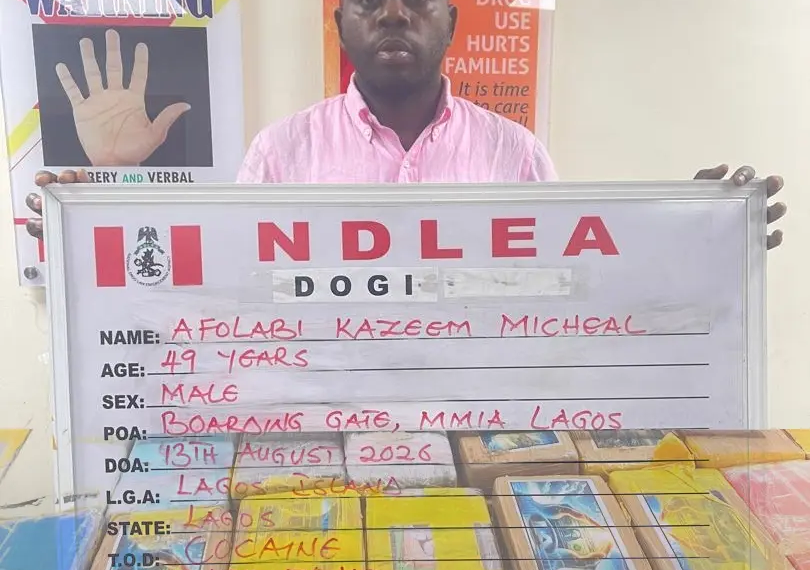 WARNING
DRUG
USE
HURTS
FAMILIES
It is time
to care
BERY AND VERBAL
NDLEA
DOGI
NAME: AFOLABI KAZEEM MICHEAL
AGE: 49 YEARS
SEX: MALE
POA: BOARDING GATE, MMIA LAGOS
DOA: 13TH AUGUST 2026
L.G.A: LAGOS ISLAND
STATE: LAGOS
T.O.D: COCAINE